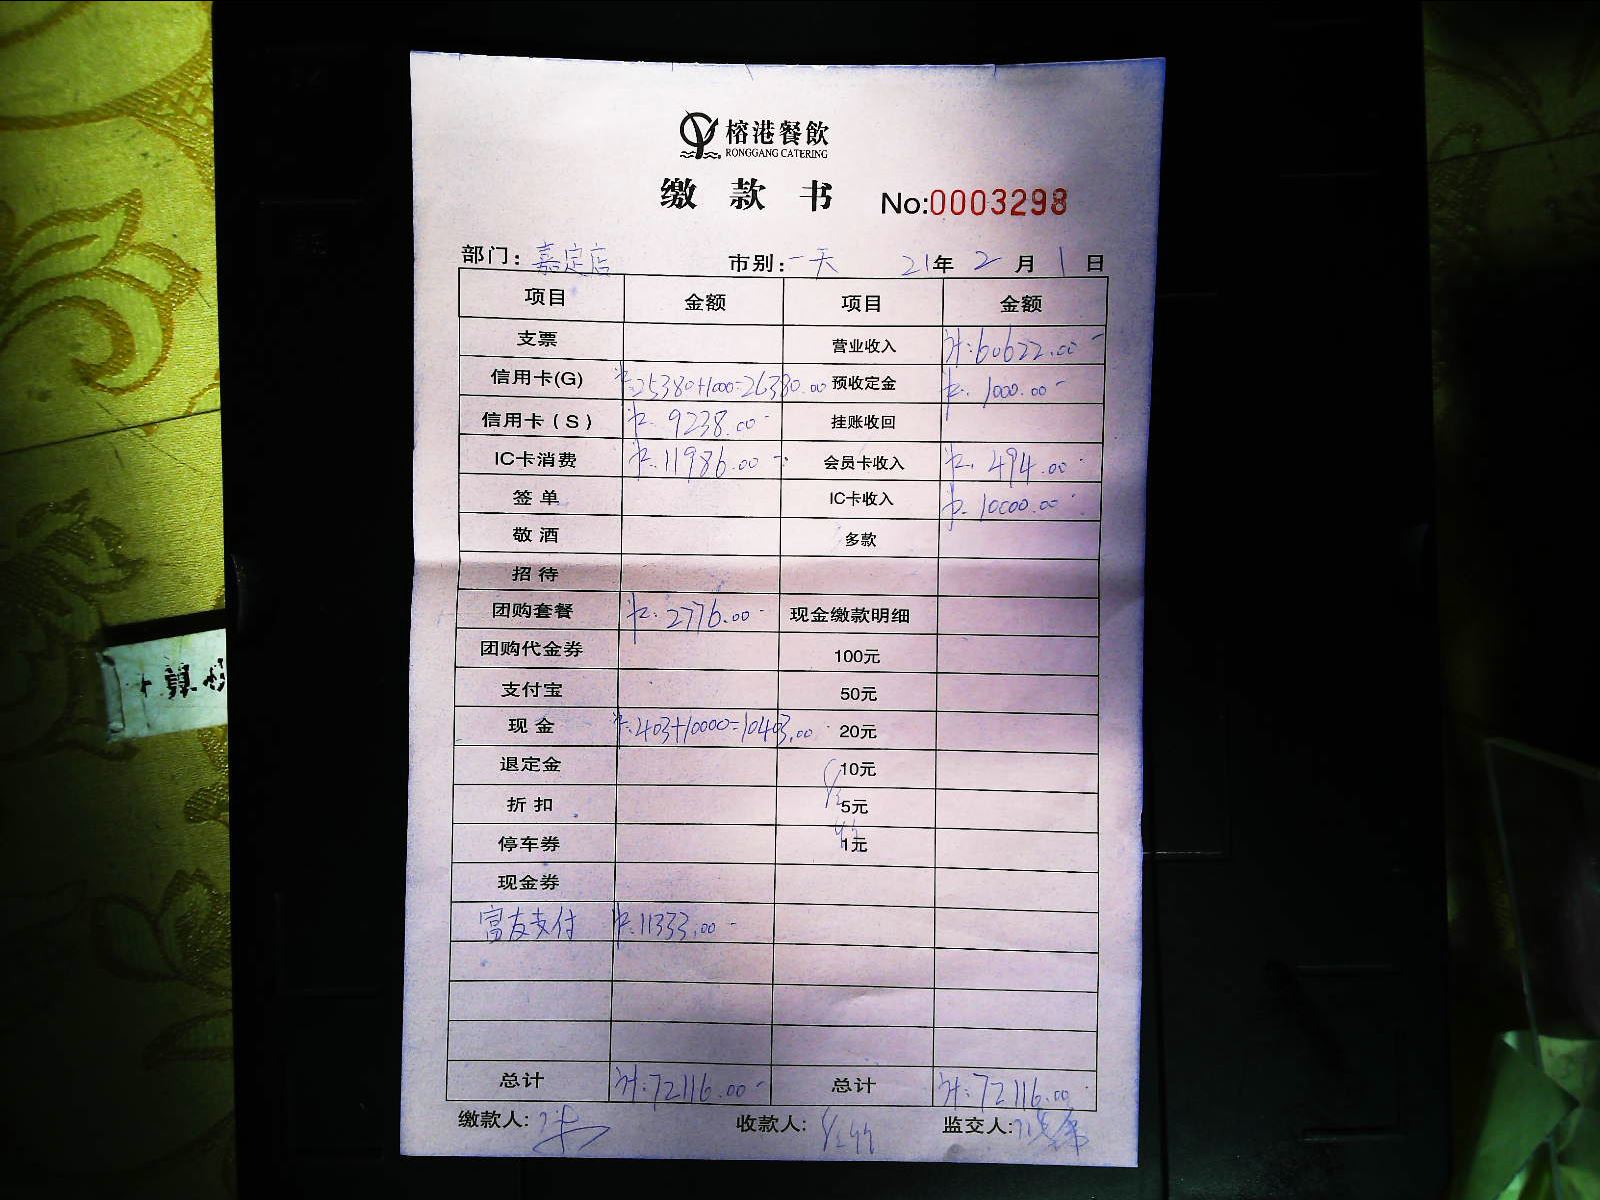 榕港餐飲
RONGGANG CATERING
缴款书 No:0003298
部门：嘉定店 市别：一天 21年2月1日
项目 金额 项目 金额
支票 营业收入 计:60622.00
信用卡(G) ¥:25380+1000=26380.00 预收定金 ¥:1000.00
信用卡(S) ¥:9238.00 挂账收回
IC卡消费 ¥:11986.00 会员卡收入 ¥:494.00
签单 IC卡收入 ¥:10000.00
敬酒 多款
招待
团购套餐 ¥:2776.00 现金缴款明细
团购代金券 100元
支付宝 50元
现金 ¥:403+10000=10403.00 20元
退定金 10元
折扣 5元
停车券 1元
现金券
富友支付 ¥:11333.00
总计 计:72116.00 总计 计:72116.00
缴款人: 收款人: 监交人:
算